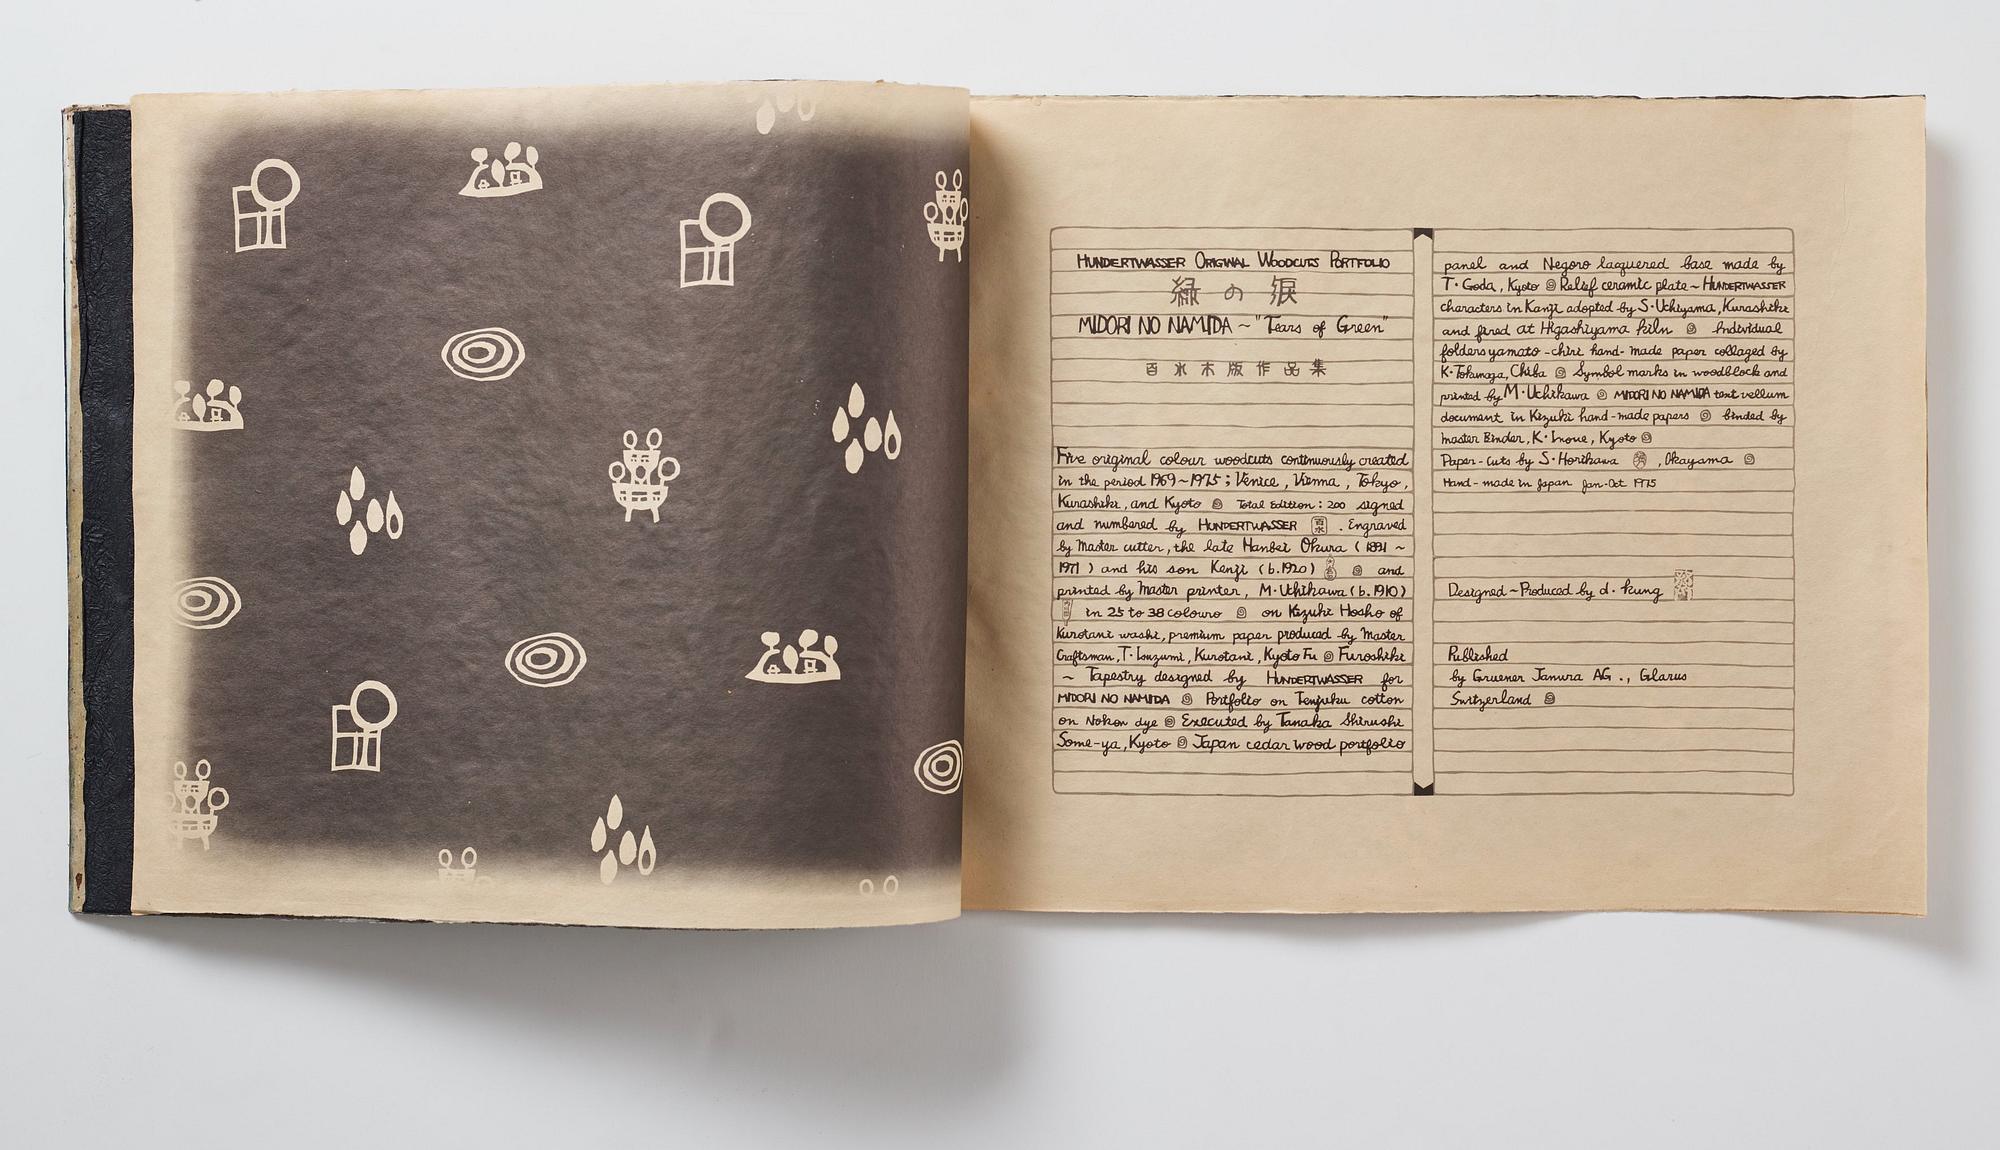 HUNDERTWASSER ORIGINAL WOODCUTS PORTFOLIO
緑 の 涙
MIDORI NO NAMIDA ~ "Tears of Green"
百 水 木 版 作 品 集
Five original colour woodcuts continuously created
in the period 1969~1975 ; Venice , Vienna , Tokyo ,
Kurashiki, and Kyoto Total Edition : 200 signed
and numbered by HUNDERTWASSER 百水 . Engraved
by Master cutter, the late Hanbei Okura ( 1891 ~
1971 ) and his son Kenji ( b.1920 ) and
printed by Master printer, M. Uchikawa ( b. 1910 )
in 25 to 38 colours on Kizuki Hosho of
Kurotani washi, premium paper produced by Master
Craftsman, T. Iouzumi, Kurotani, Kyoto Fu Furoshiki
~ Tapestry designed by HUNDERTWASSER for
MIDORI NO NAMIDA Portfolio on Tenjuku cotton
on Nokon dye Executed by Tanaka Shirushi
Some-ya, Kyoto Japan cedar wood portfolio
panel and Negoro lacquered base made by
T. Goda , Kyoto Relief ceramic plate ~ HUNDERTWASSER
characters in Kanji adopted by S. Uchiyama, Kurashiki
and fired at Higashiyama kiln Individual
folders yamato-chiri hand-made paper collaged by
K. Tokunaga, Chiba Symbol marks in woodblock and
printed by M. Uchikawa MIDORI NO NAMIDA text vellum
document in Kizuki hand-made papers binded by
Master Binder, K. Inoue, Kyoto
Paper-cuts by S. Horikawa , Okayama
Hand-made in Japan Jan-Oct 1975
Designed ~ Produced by d. kung
Published
by Gruener Janura AG ., Glarus
Switzerland